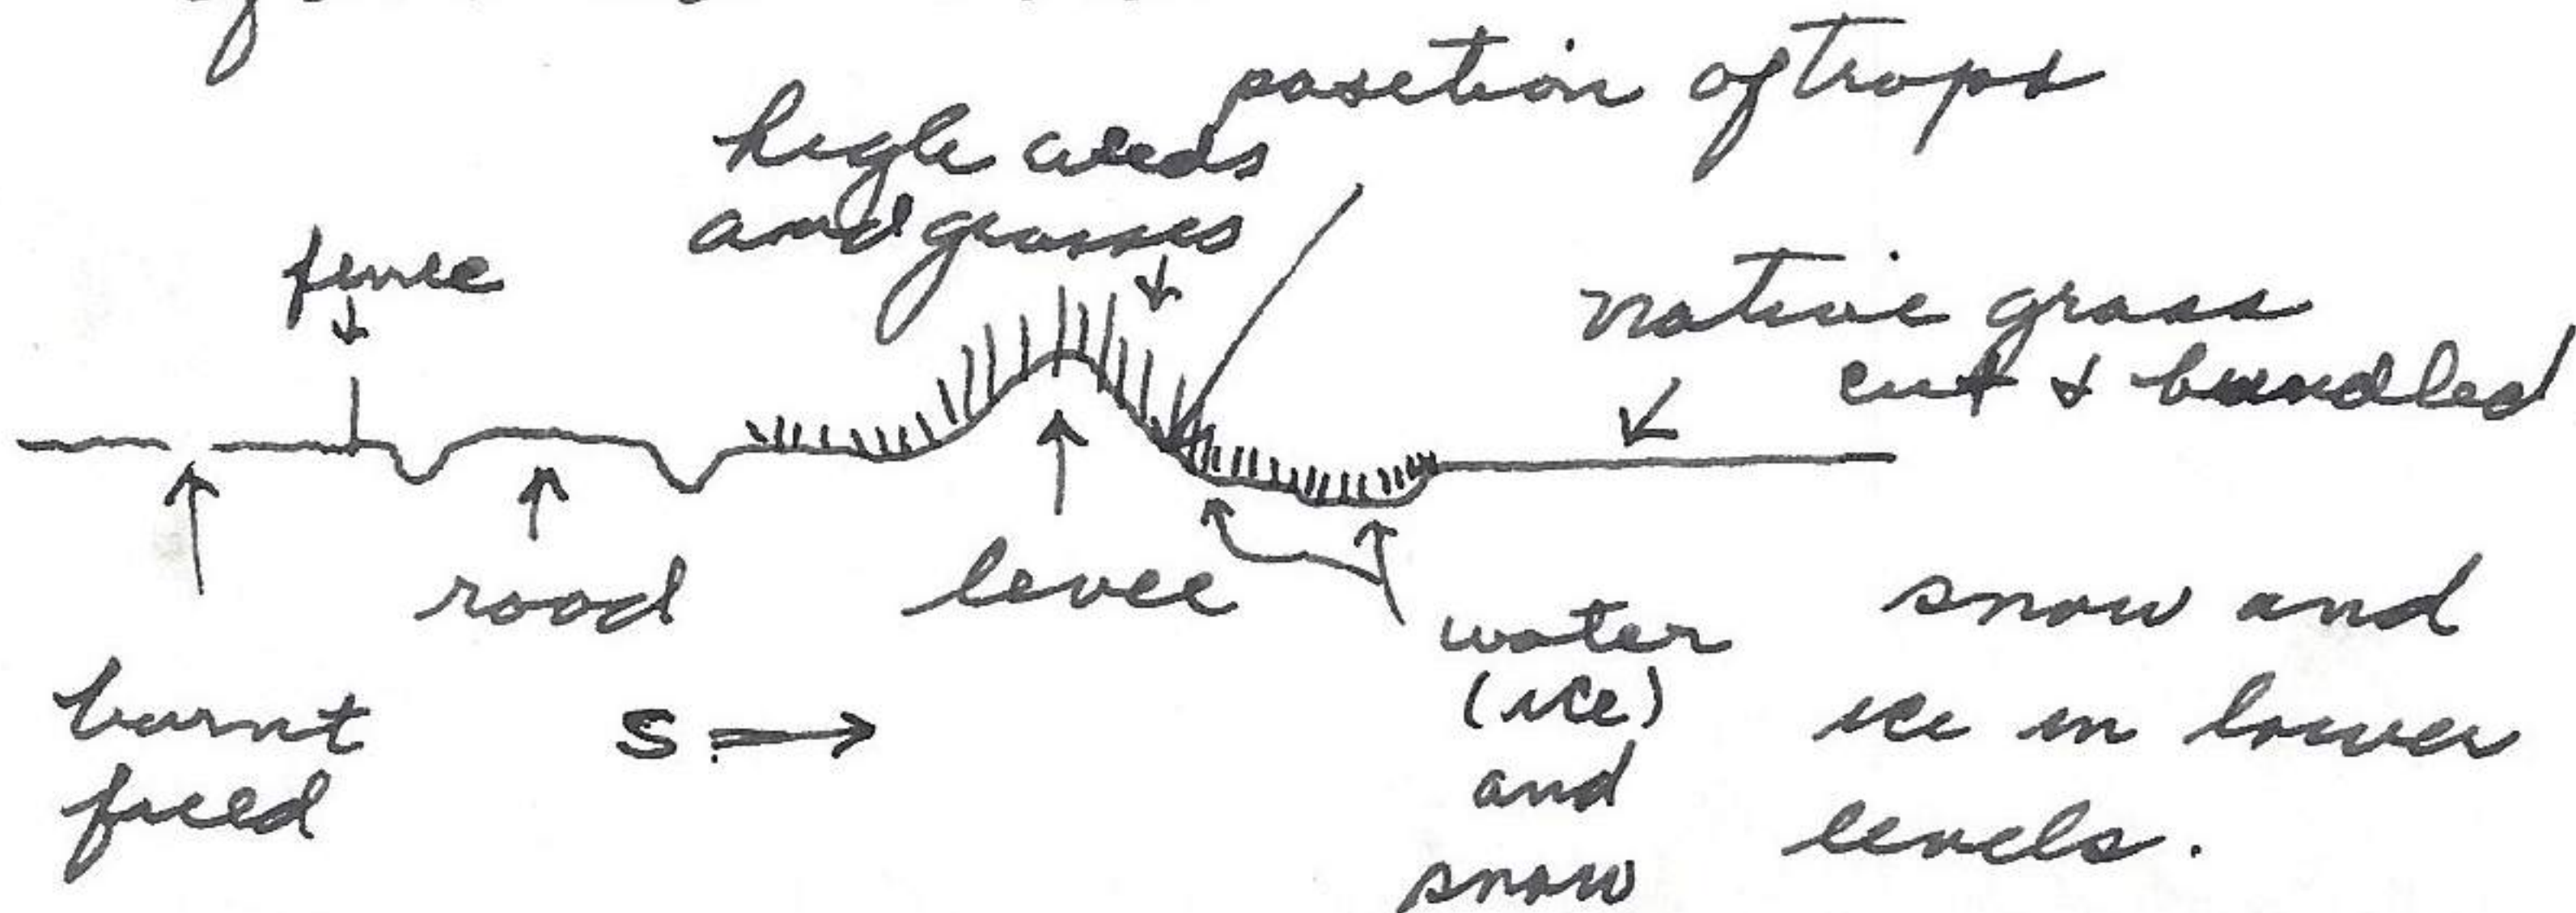 position of traps
high weeds
and grasses
fence
native grass
cut & bundled
road
levee
water
(ice)
and
snow
snow and
ice in lower
levels.
burnt
field
S